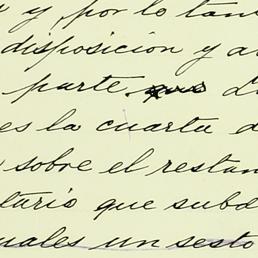 y por lo tan
disposicion y a
parte que
es la cuarta d
sobre el restan
tario que subd
uales un sesto